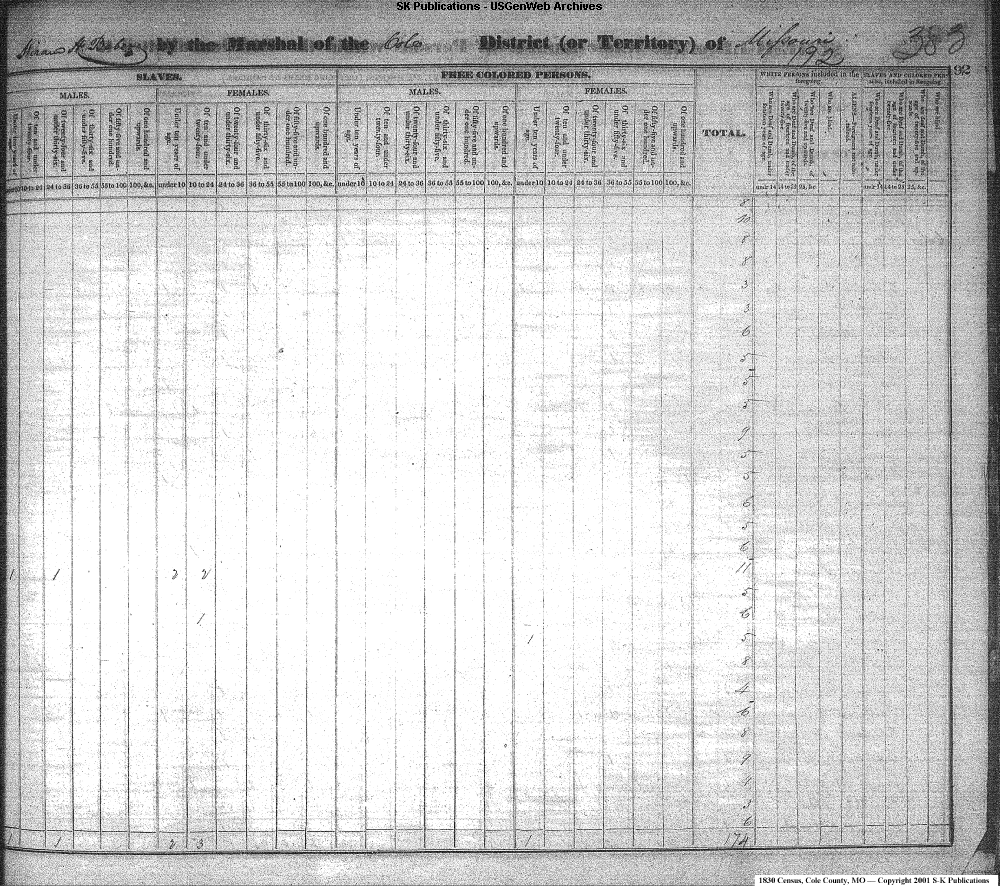 SK Publications - USGenWeb Archives
by the Marshal of the Cole District (or Territory) of Missouri 383
192
92
SLAVES. FREE COLORED PERSONS. WHITE PERSONS included in the foregoing. SLAVES AND COLORED PERSONS, included in foregoing.
MALES. FEMALES. MALES. FEMALES. TOTAL.
Of ten and under twenty-four. Of twenty-four and under thirty-six. Of thirty-six and under fifty-five. Of fifty-five and under one hundred. Of one hundred and upwards. Under ten years of age. Of ten and under twenty-four. Of twenty-four and under thirty-six. Of thirty-six and under fifty-five. Of fifty-five and under one hundred. Of one hundred and upwards. Under ten years of age. Of ten and under twenty-four. Of twenty-four and under thirty-six. Of thirty-six and under fifty-five. Of fifty-five and under one hundred. Of one hundred and upwards. Under ten years of age. Of ten and under twenty-four. Of twenty-four and under thirty-six. Of thirty-six and under fifty-five. Of fifty-five and under one hundred. Of one hundred and upwards.
10 to 24 24 to 36 36 to 55 55 to 100 100, &c. under 10 10 to 24 24 to 36 36 to 55 55 to 100 100, &c. under 10 10 to 24 24 to 36 36 to 55 55 to 100 100, &c. under 10 10 to 24 24 to 36 36 to 55 55 to 100 100, &c.
8
10
8
8
3
3
6
5
5
5
9
5
5
6
5
6
1 1 2 2 11
5
1 6
1 5
8
4
6
8
9
4
3
6
1 1 2 3 1 174
1830 Census, Cole County, MO — Copyright 2001 S-K Publications